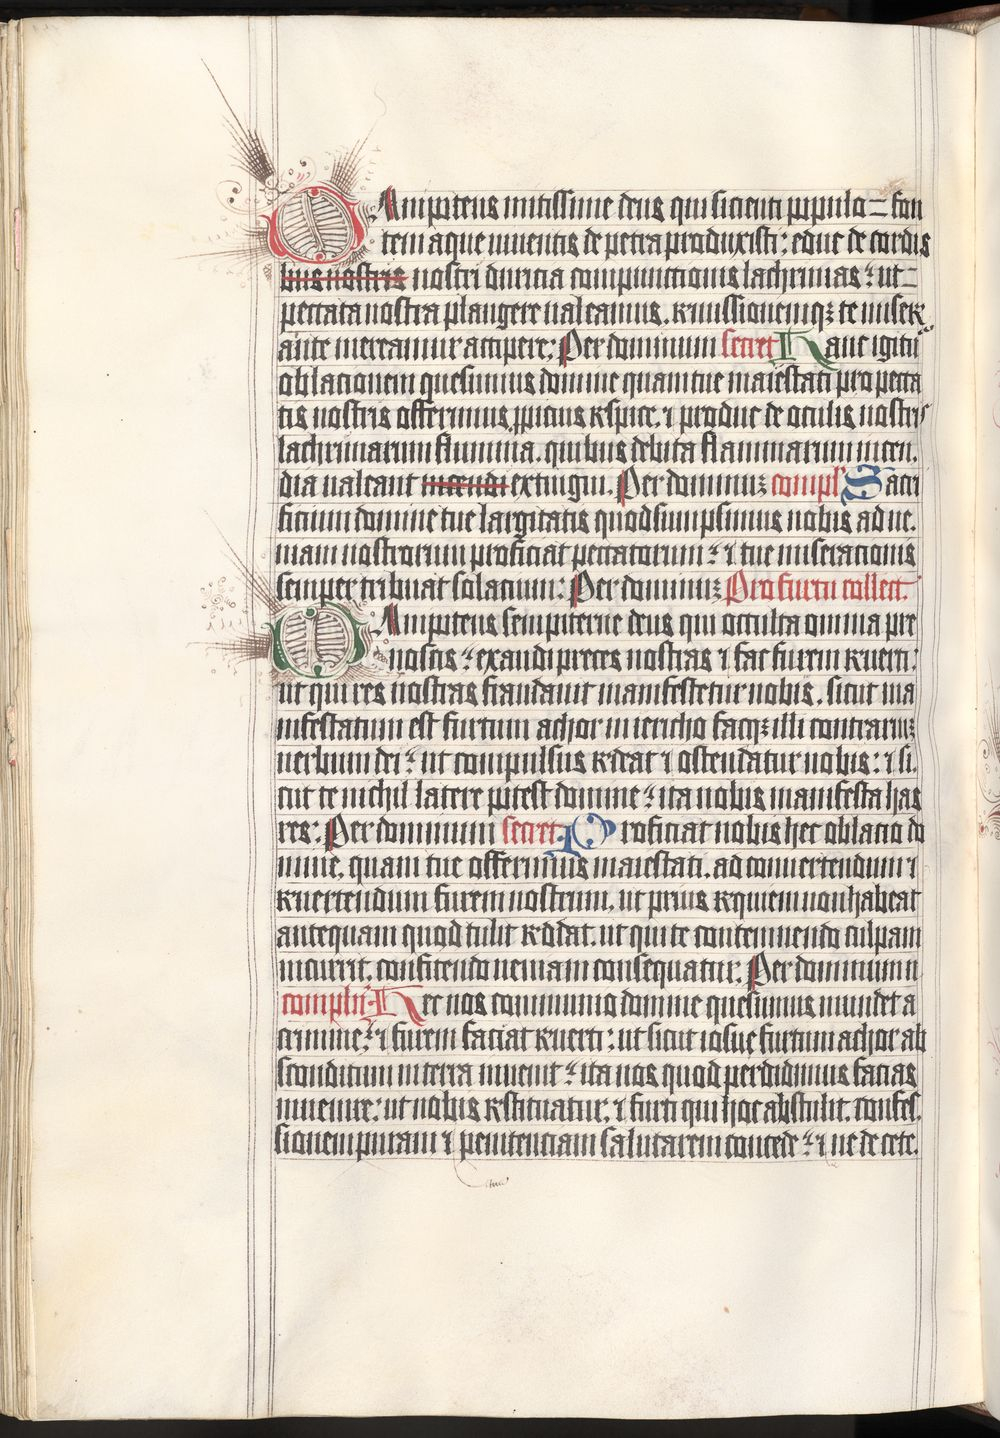 Omnipotens mitissime deus qui sicienti populo fon
tem aque viventis de petra produxisti: educ de cordis
bus nostris nostri duricia compunctionis lachrimas: ut
peccata nostra plangere valeamus. remissionemque te miser
ante mereamur accipere: Per dominum secret Hanc igitur
oblacionem quesumus domine quam tue maiestati pro pecca
tis nostris offerimus propicius respice. et produc de oculis nostris
lachrimarum flumina. quibus debita flammarum incen.
dia valeant incendi extingui. Per dominum compl Sacri
ficium domine tue largitatis quod sumpsimus nobis ad ve.
niam nostrorum proficiat peccatorum: et tue miseracionis
semper tribuat solacium: Per dominum Pro furtu collect.
Omnipotens sempiterne deus qui occulta omnia pre
noscis: exaudi preces nostras et fac furem reverti:
ut qui res nostras fraudavit manifestetur nobis. sicut ma
nifestatum est furtum achor in iericho facque illi contrarium
verbum dei: ut compulsus redeat et ostendatur nobis: et si.
cut te nichil latere potest domine: ita nobis manifesta has
res: Per dominum secret. Proficiat nobis hec oblacio do
mine. quam tue offerimus maiestati. ad convertendum et
revertendum furem nostrum. ut prius requiem non habeat
antequam quod tulit reddat. ut qui te contemnendo culpam
incurrit. confitendo veniam consequatur: Per dominum n
complen Hec nos communio domine quesumus mundet a
crimine: et furem faciat reverti: ut sicut iosue furtum achor ab
sconditum in terra invenit: ita nos quod perdidimus facias
invenire: ut nobis restituatur. et furi qui hoc abstulit. confes.
sionem puram et penitenciam salutarem concede: et ne de cete.